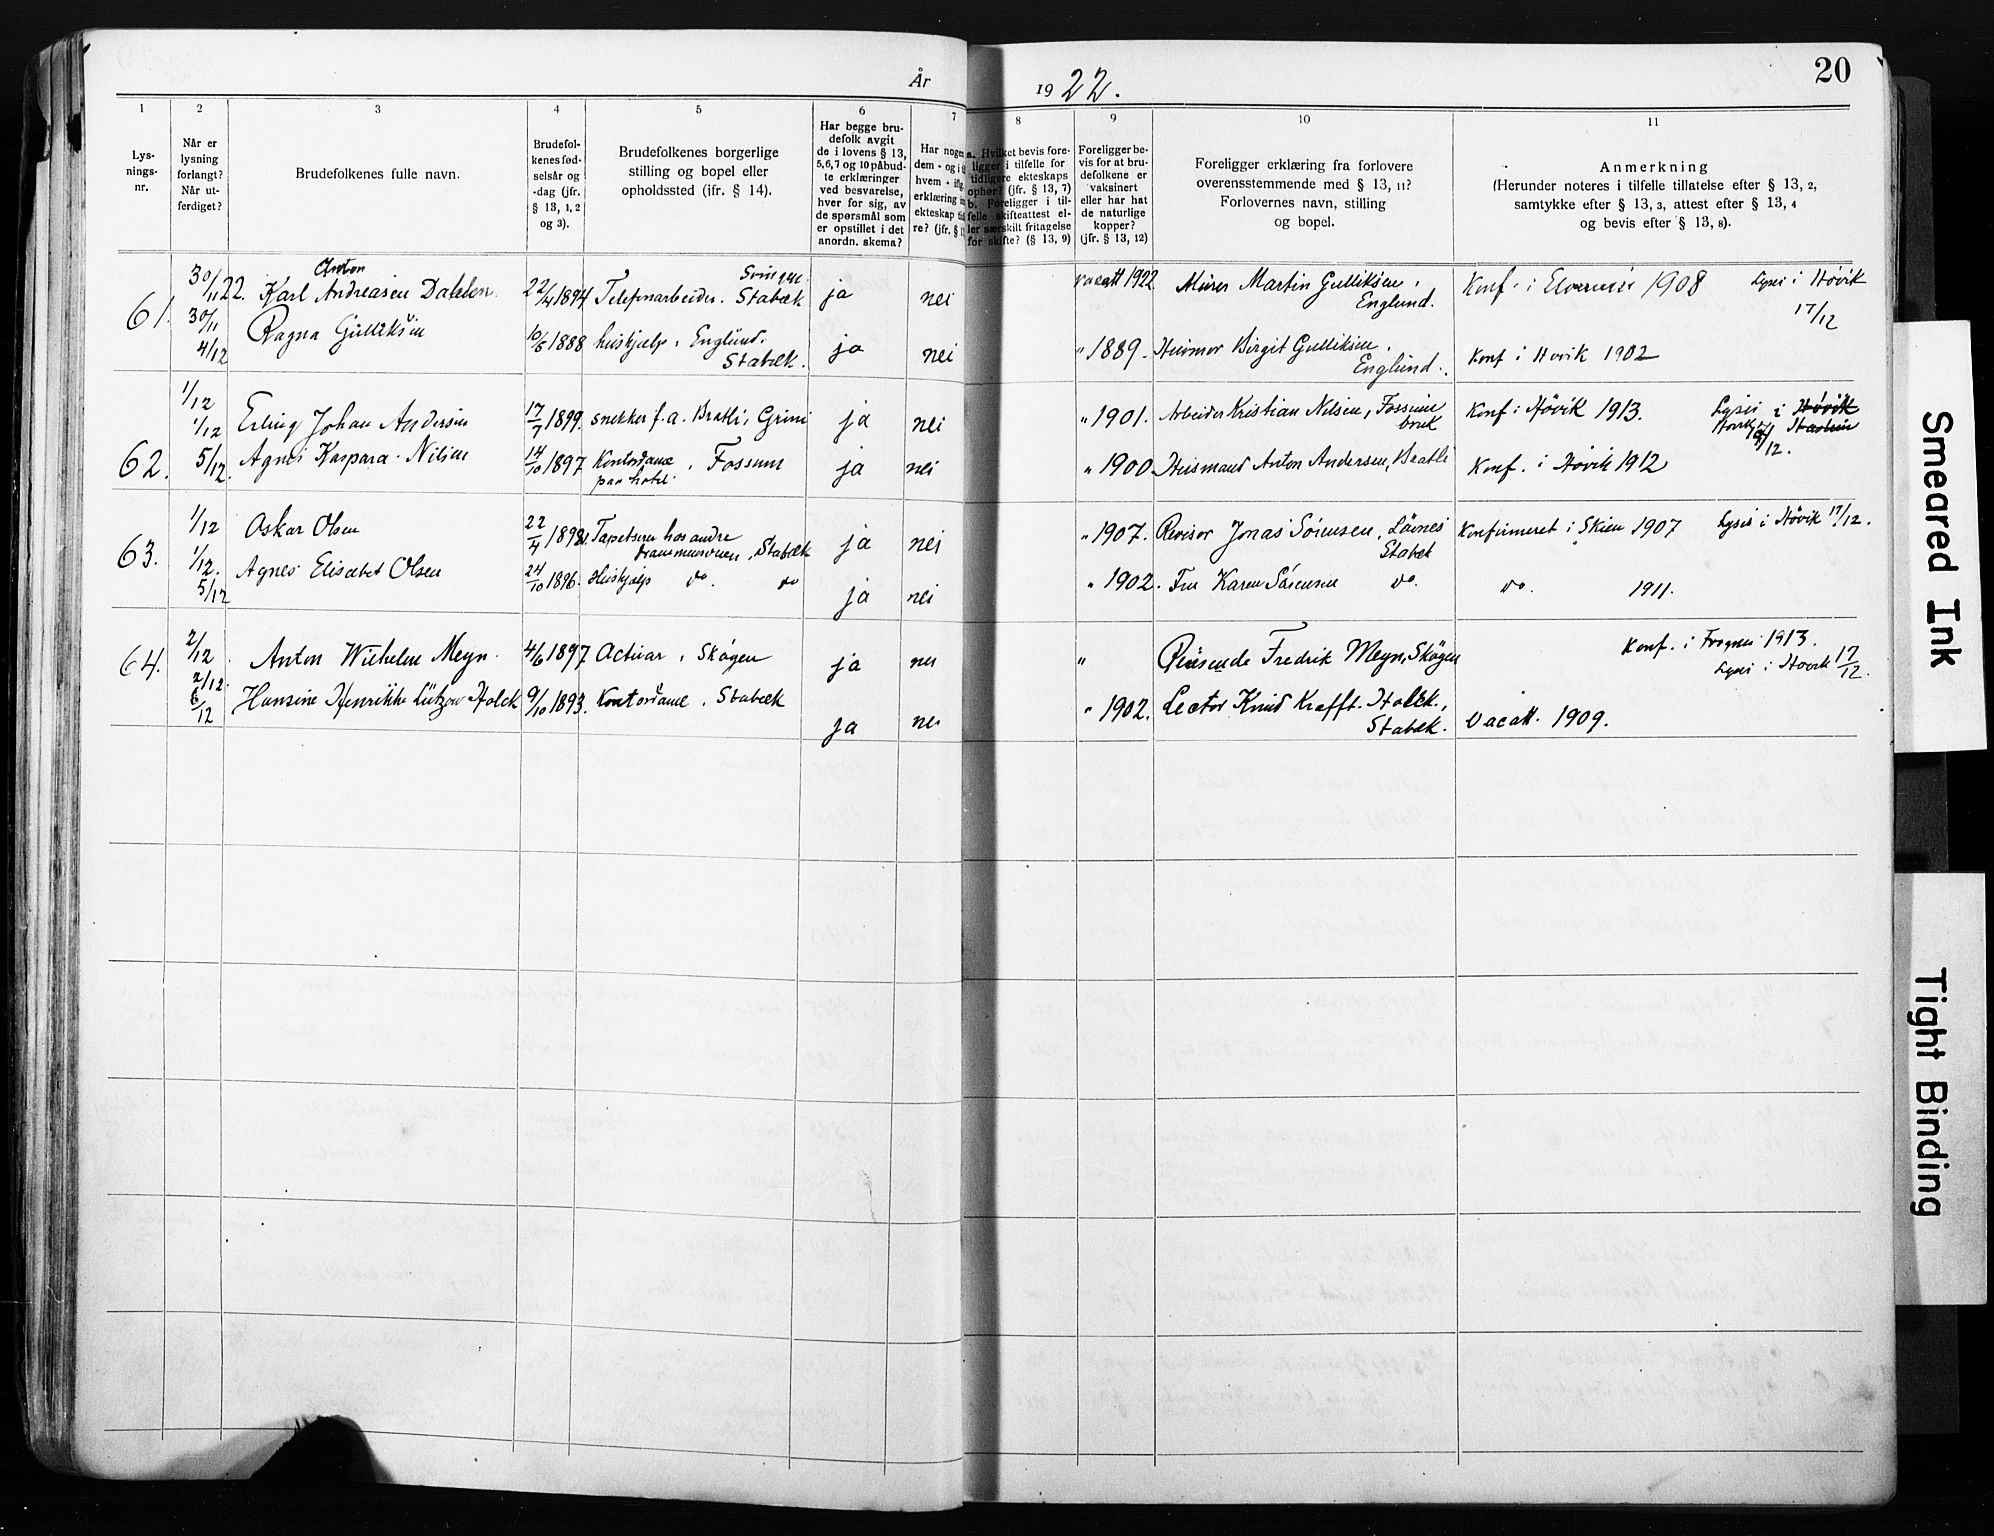 År 1922.
20
1 2 3 4 5 6 7 8 9 10 11
Lys-
nings-
nr.
Når er
lysning
forlangt?
Når ut-
ferdiget?
Brudefolkenes fulle navn.
Brudefol-
kenes fød-
selsår og
-dag (jfr.
§ 13, 1, 2
og 3).
Brudefolkenes borgerlige
stilling og bopel eller
opholdssted (ifr. § 14).
Har begge bru-
defolk avgit
de i lovens § 13,
5, 6, 7 og 10 påbud-
te erklæringer
ved besvarelse,
hver for sig, av
de spørsmål som
er opstillet i det
anordn. skema?
Har nogen
dem - og i
hvem - ifl.
erklæring in
ekteskap
re? (jfr. §
a. Hvilket bevis fore-
ligger i tilfelle for
tidligere ekteskaps
ophør? (jfr. § 13, 7)
b. Foreligger i til-
felle skifteattest el-
ler særskilt fritagelse
for skifte? (§ 13, 9)
Foreligger be-
vis for at bru-
defolkene er
vaksinert
eller har hat
de naturlige
kopper?
(jfr. § 13, 12)
Foreligger erklæring fra forlovere
overensstemmende med § 13, 11?
Forlovernes navn, stilling
og bopel.
Anmerkning
(Herunder noteres i tilfelle tillatelse efter § 13, 2,
samtykke efter § 13, 3, attest efter § 13, 4
og bevis efter § 13, 8).
61.
30/11 22.
30/11
4/12
Anton
Karl Andreasen Dahlen. 22/4 1894 Telefonarbeider. Stabæk ja nei
vacatt 1922 Mürer Martin Gulliksen, Englund. Konf. i 1908 Lyses i Høvik 17/12
Ragna Gulliksen 10/5 1888 huskjælp, Englund. Stabæk. ja nei
" 1889. Husmor Birgit Gulliksen, Englund. Konf i Høvik 1902
62.
1/12
1/12
5/12.
Erling Johan Andersen 17/7 1899. snekker f.a. Bratli, Grini ja nei
" 1901. Arbeider Kristian Nilsen, Fossum bruk Konf i Høvik 1913. Lyses i Høvik
/12.
Agnes Kaspara Nilsen 14/10 1897 Kontordame paa hotel, Fossum ja nei
" 1900 Husmand Anton Andersen, Bratli Konf. i Høvik 1912
63.
1/12
1/12.
5/12
Oskar Olsen 22/4 1892. Tapetserer hos andre Drammensveien, Stabæk ja nei
" 1907. Revisor Jonas Sörensen, Lövnes Stabæk Konfirmeret i Skien 1907 Lyses i Høvik 17/12.
Agnes Elisabet Olsen 24/10 1896. Huskjælp do. do ja nei
" 1902. Fru Karen Sörensen do. do. 1911.
64.
2/12.
2/12.
6/12
Anton Wilhelm Meyn. 4/6 1897 Actuar, Skøyen ja nei
" Reisende Fredrik Meyn, Skøyen Konf. i Frogner 1913.
Lyses i Høvik 17/12.
Hansine Henrikke Lützow Holck 9/10 1893. Kontordame, Stabæk ja nei
" 1902. Lector Knud Krafft Holck, Stabæk. Vacatt. 1909.
Smeared Ink
Tight Binding